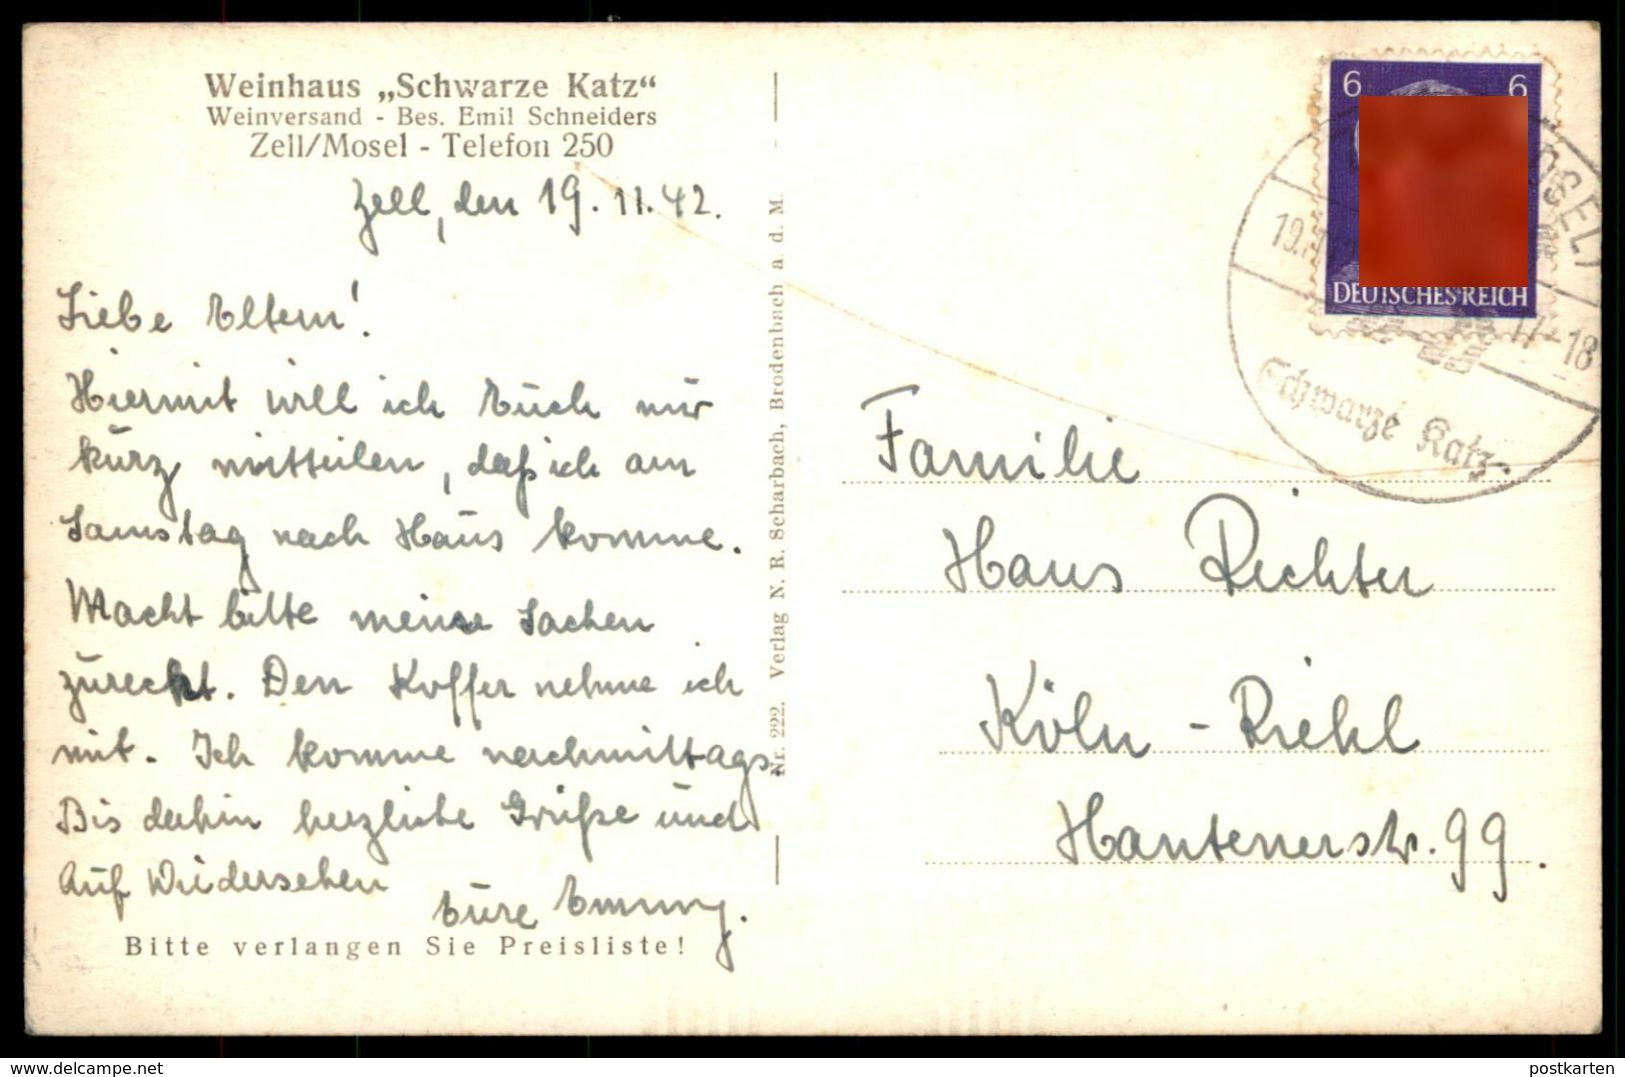 Weinhaus „Schwarze Katz“
Weinversand - Bes. Emil Schneiders
Zell/Mosel - Telefon 250
Zell, den 19. 11. 42.
Liebe Eltern!
Hiermit will ich Euch nur
kurz mitteilen, daß ich am
Samstag nach Haus komme.
Macht bitte meine Sachen
zurecht. Den Koffer nehme ich
mit. Ich komme nachmittags.
Bis dahin herzliche Grüße und
Auf Wiedersehen
Eure Emmy.
Bitte verlangen Sie Preisliste!
Nr. 222. Verlag N. R. Scharbach, Brodenbach a. d. M.
6 6
DEUTSCHES REICH
17-18
Schwarze Katz
Familie
Hans Richter
Köln - Riehl
Xantenerstr. 99.
www.delcampe.net
postkarten